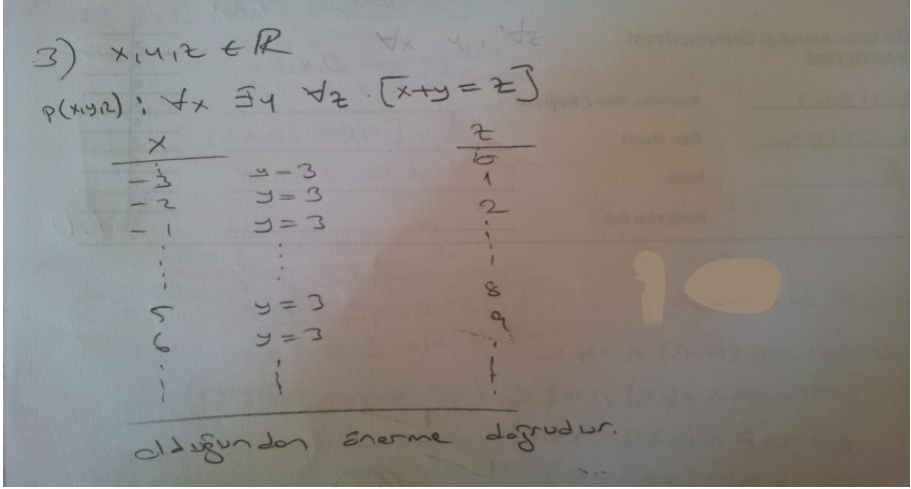 3) x,y,z ∈ ℝ
p(x,y,z) : ∀x ∃y ∀z . [x+y = z]
x z
-3 y=3 0
-2 y=3 1
-1 y=3 2
⋮ ⋮ ⋮
5 y=3 8
6 y=3 9
⋮ ⋮ ⋮
olduğundan önerme doğrudur.